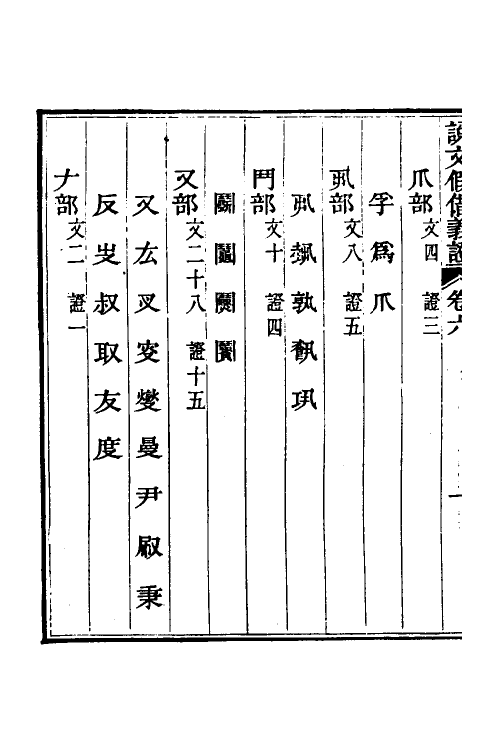 說文假借義證 卷六 一
爪部 文四 證三
孚爲爪
丮部 文八 證五
丮孰巩
鬥部 文十 證四
又部 文二十八 證十五
又厷叉叜燮曼尹㕞秉
反叔取友度
𠂇部 文二 證一